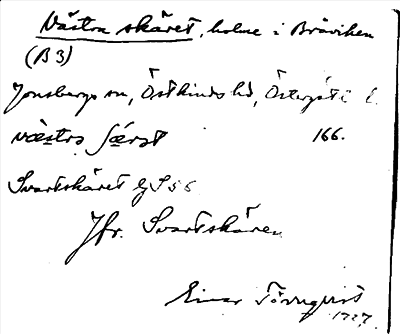 Västra skäret, holme i Bråviken
(B3)
Jonsbergs sn, Östkinds hd, Östergötl.
västra 166.
Svartskäret GS56
Jfr. Svartskären
Einar Törnqvist
1927.